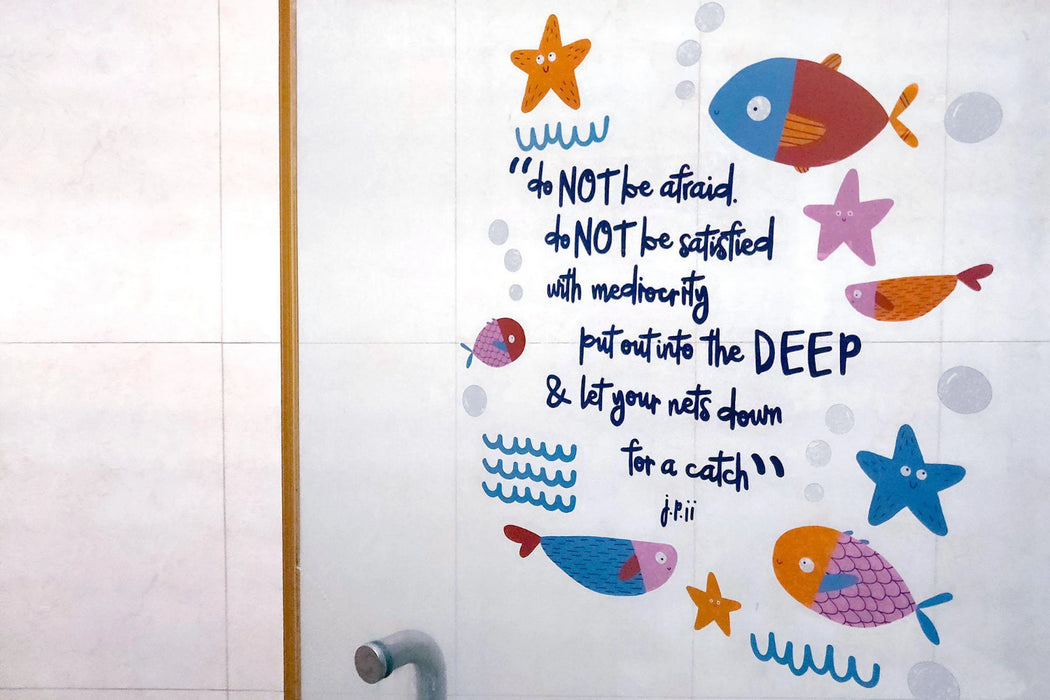 “do NOT be afraid.
do NOT be satisfied
with mediocrity
put out into the DEEP
& let your nets down
for a catch”
j.p.ii